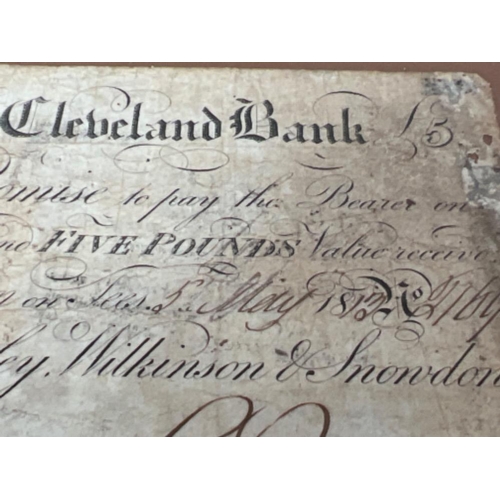 Cleveland Bank £5
Promise to pay the Bearer on
FIVE POUNDS Value receive
on Tees 5 May 1813 No 2769
ley, Wilkinson & Snowdon